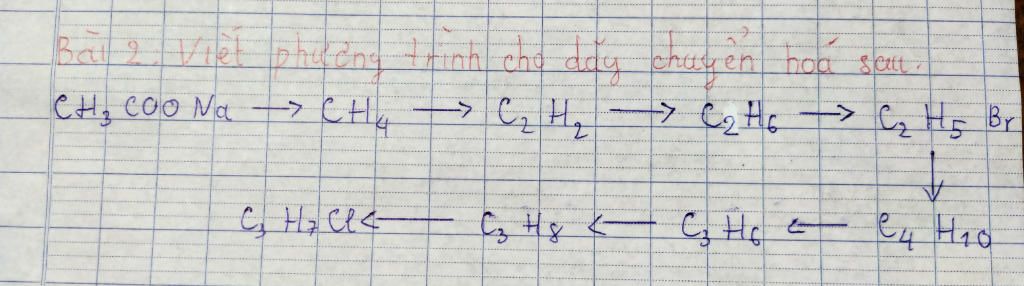 Bài 2. Viết phương trình cho dãy chuyển hoá sau.
CH₃COONa → CH₄ → C₂H₂ → C₂H₆ → C₂H₅Br
↓
C₃H₇Cl ← C₃H₈ ← C₃H₆ ← C₄H₁₀